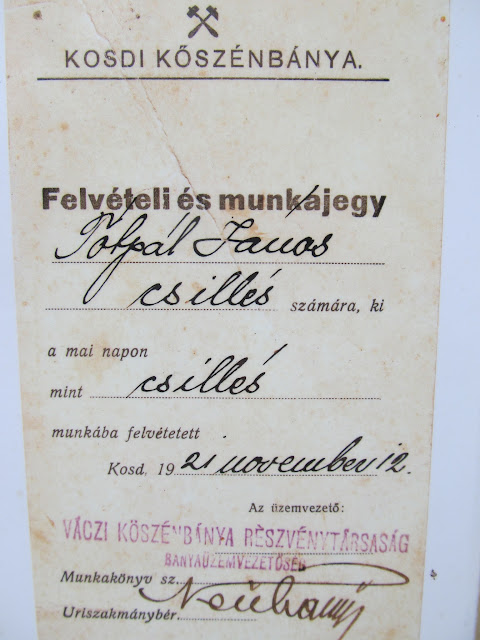 KOSDI KŐSZÉNBÁNYA.
Felvételi és munkájegy
Tótpál János
csillés számára, ki
a mai napon
mint csillés
munkába felvétetett
Kosd, 1921 november 12.
Az üzemvezető:
VÁCZI KŐSZÉNBÁNYA RÉSZVÉNYTÁRSASÁG
BÁNYAÜZEMVEZETŐSÉG
Munkakönyv sz.
Uriszakmánybér